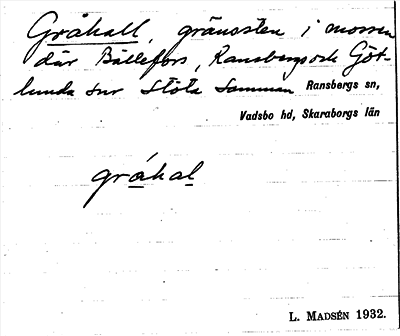 Gråkall, gränssten i mossen
där Bällefors, Ransbergs och Göt-
lunda snr stöta samman Ransbergs sn,
Vadsbo hd, Skaraborgs län
gråkal
L. MADSÉN 1932.